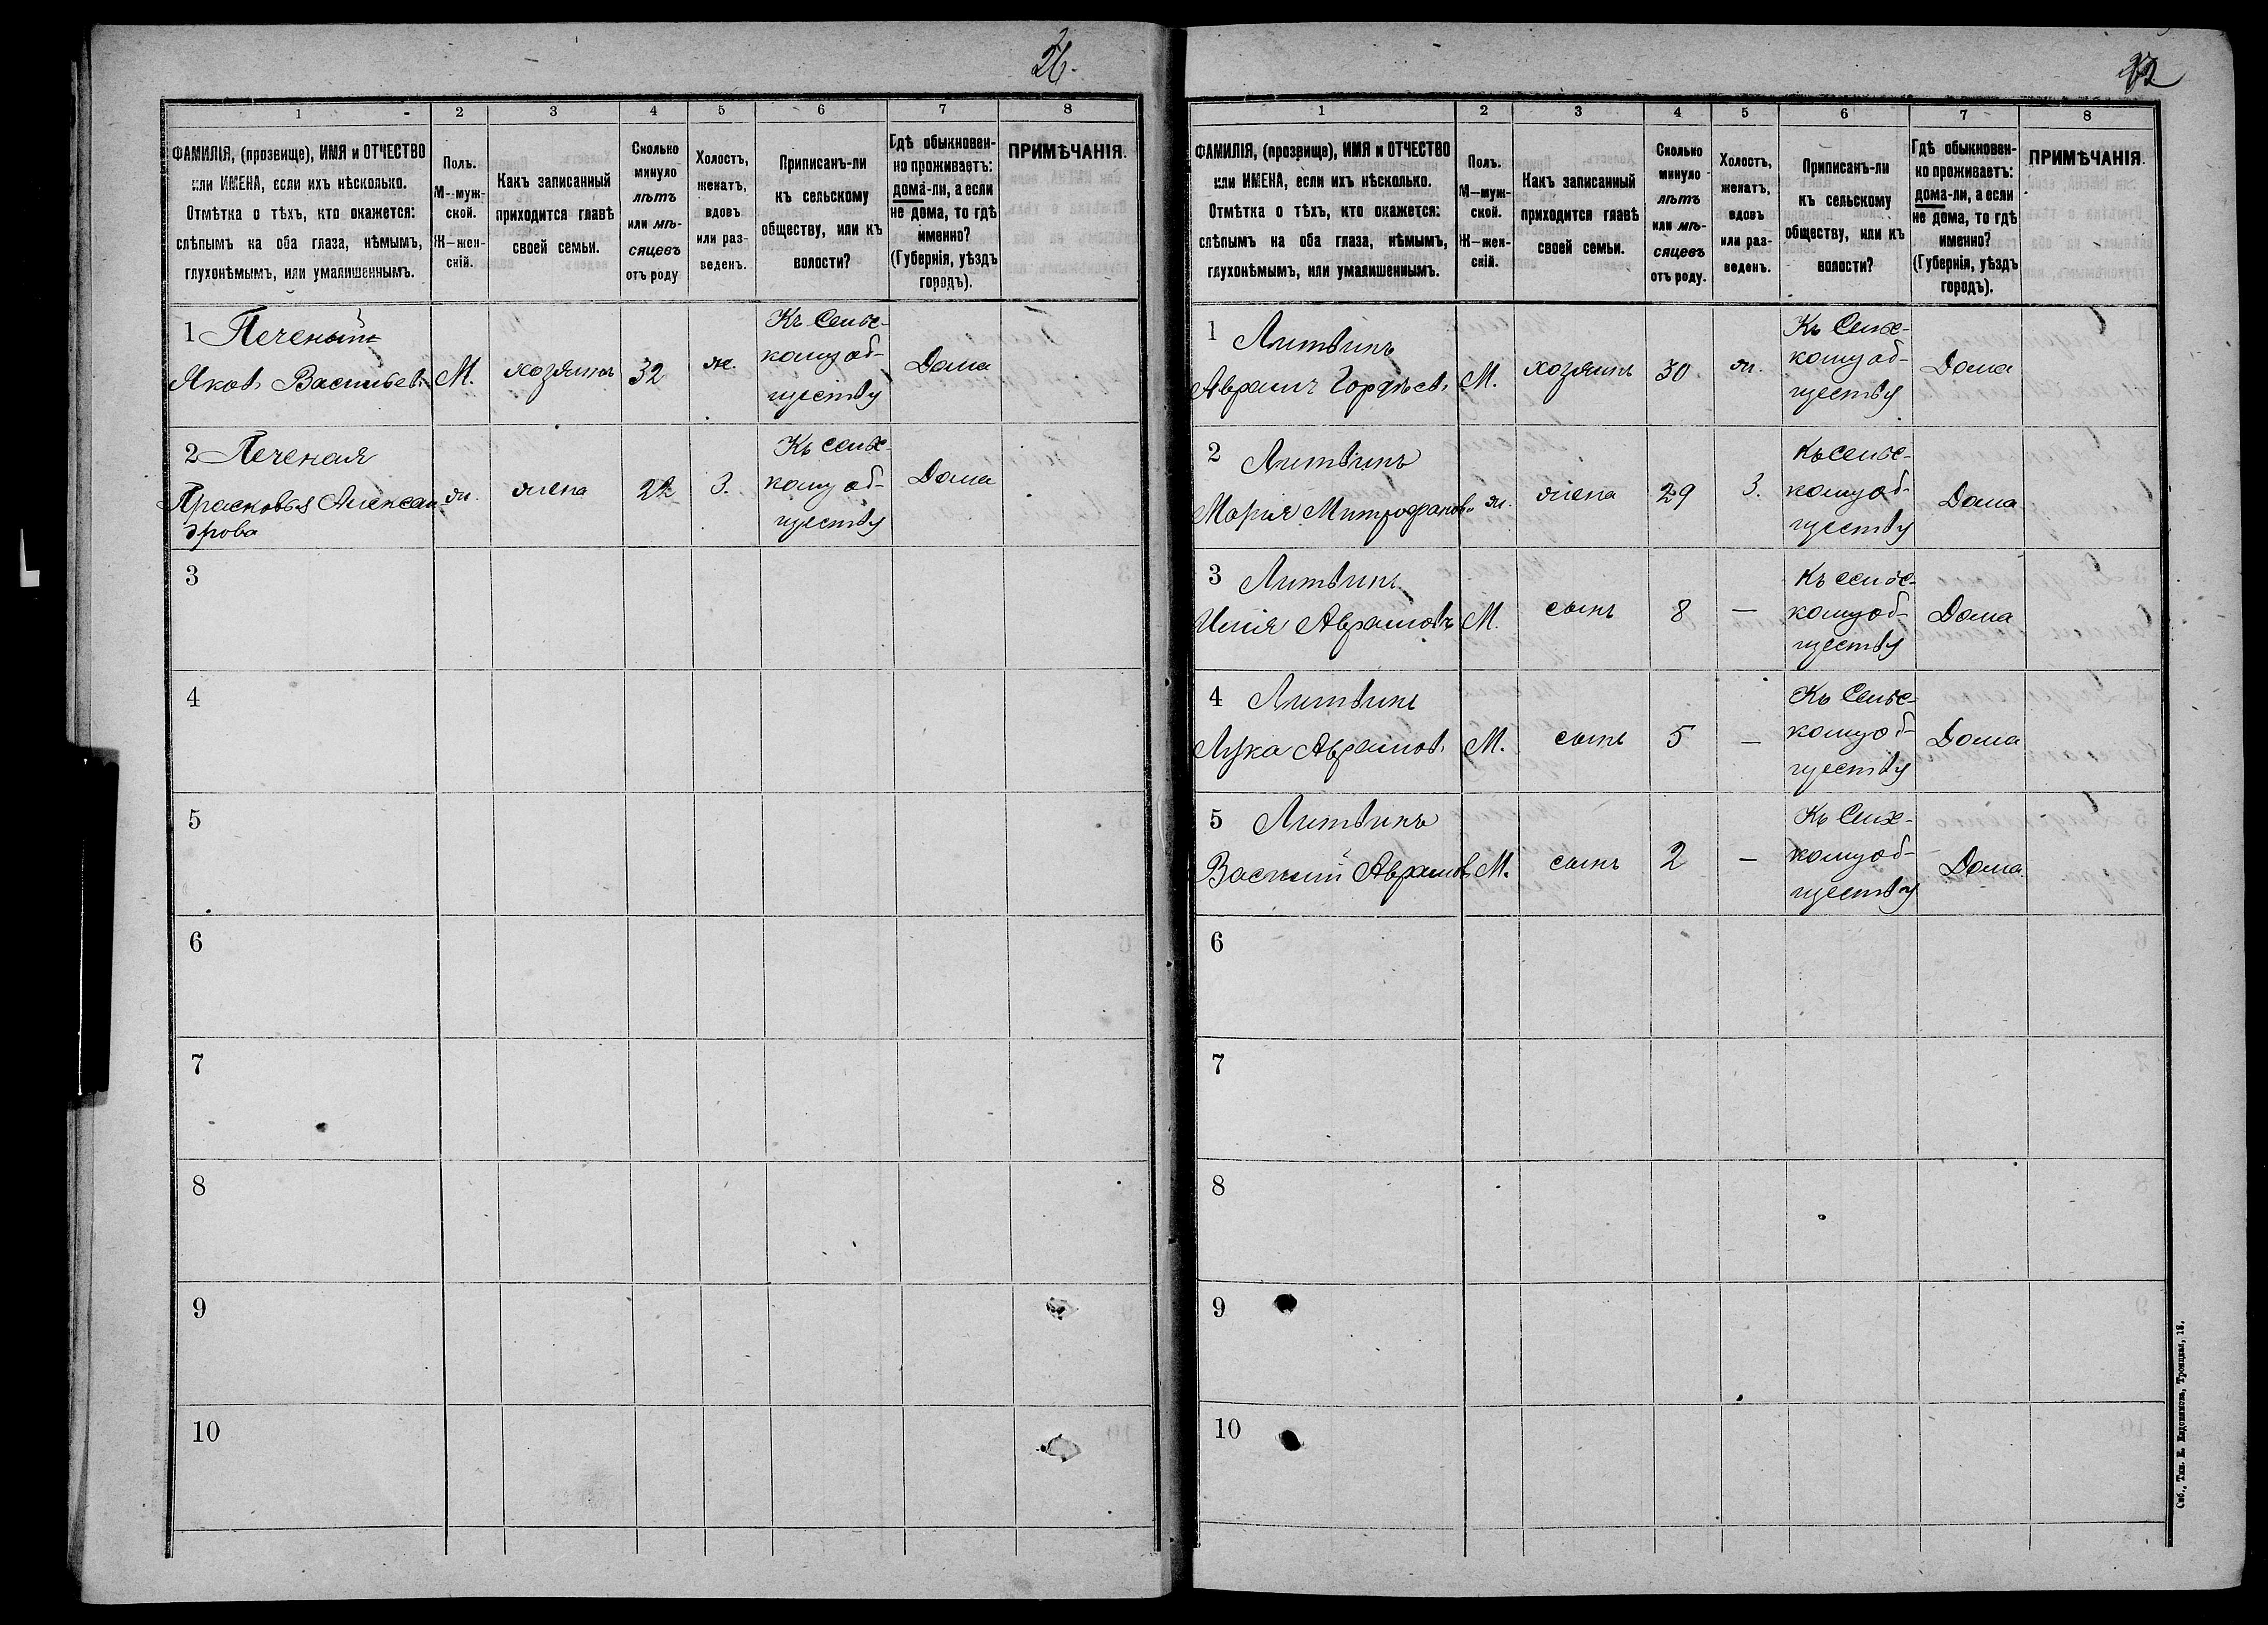 26.
1 2 3 4 5 6 7 8
ФАМИЛІЯ, (прозвище), ИМЯ и ОТЧЕСТВО
или ИМЕНА, если ихъ нѣсколько.
Отмѣтка о тѣхъ, кто окажется:
слѣпымъ на оба глаза, нѣмымъ,
глухонѣмымъ, или умалишеннымъ.
Полъ.
М—муж-
ской.
Ж—жен-
скій.
Какъ записанный
приходится главѣ
своей семьи.
Сколько
минуло
лѣтъ
или мѣ-
сяцевъ
отъ роду
Холостъ,
женатъ,
вдовъ
или раз-
веденъ.
Приписанъ-ли
къ сельскому
обществу, или къ
волости?
Гдѣ обыкновен-
но проживаетъ:
дома-ли, а если
не дома, то гдѣ
именно?
(Губернія, уѣздъ
городъ).
ПРИМѢЧАНІЯ.
1 Печеный
Яковъ Васильевъ М. хозяинъ 32 ж. Къ Сельс-
кому об-
ществу Дома
2 Печеная
Прасковья Алексан-
дрова ж. жена 22 З. Къ сельс-
кому об-
ществу Дома
3
4
5
6
7
8
9
10
1 2 3 4 5 6 7 8
ФАМИЛІЯ, (прозвище), ИМЯ и ОТЧЕСТВО
или ИМЕНА, если ихъ нѣсколько.
Отмѣтка о тѣхъ, кто окажется:
слѣпымъ на оба глаза, нѣмымъ,
глухонѣмымъ, или умалишеннымъ.
Полъ.
М—муж-
ской.
Ж—жен-
скій.
Какъ записанный
приходится главѣ
своей семьи.
Сколько
минуло
лѣтъ
или мѣ-
сяцевъ
отъ роду.
Холостъ,
женатъ,
вдовъ
или раз-
веденъ.
Приписанъ-ли
къ сельскому
обществу, или къ
волости?
Гдѣ обыкновен-
но проживаетъ:
дома-ли, а если
не дома, то гдѣ
именно?
(Губернія, уѣздъ
городъ).
ПРИМѢЧАНІЯ.
1 Литвинъ
Аврамъ Гордѣевъ М. хозяинъ 30 ж. Къ Сельс-
кому об-
ществу Дома
2 Литвинъ
Марія Митрофанов. ж. жена 29 З. Къ сельс-
кому об-
ществу Дома
3 Литвинъ
Илія Аврамовъ М. сынъ 8 — Къ сельс-
кому об-
ществу Дома
4 Литвинъ
Лука Аврамовъ М. сынъ 5 — Къ Сельс-
кому об-
ществу Дома
5 Литвинъ
Василий Аврамовъ М. сынъ 2 — Къ Сельс-
кому об-
ществу Дома
6
7
8
9
10